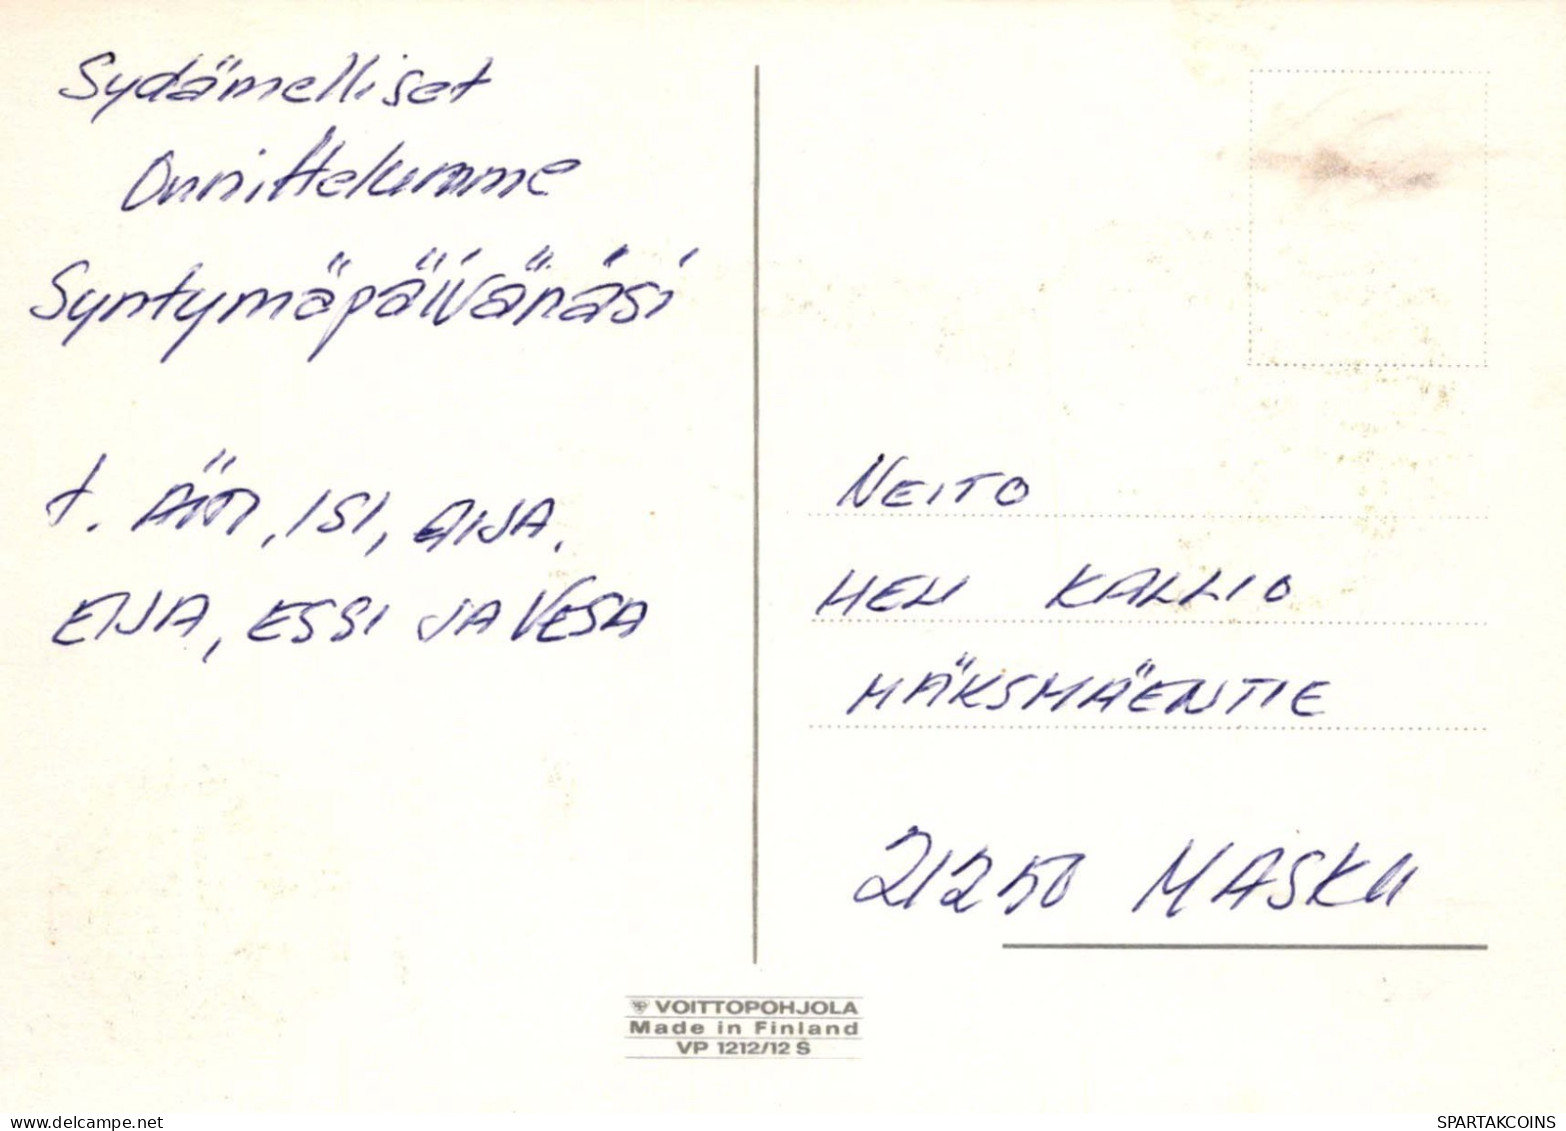 Sydämelliset
Onnittelumme
Syntymäpäivänäsi
t. ÄITI, ISI, AIJA,
EIJA, ESSI JA VESA
NEITO
HELI KALLIO
MÄKSMÄENTIE
21250 MASKU
VOITTOPOHJOLA
Made in Finland
VP 1212/12 Š
SPARTAKCOINS